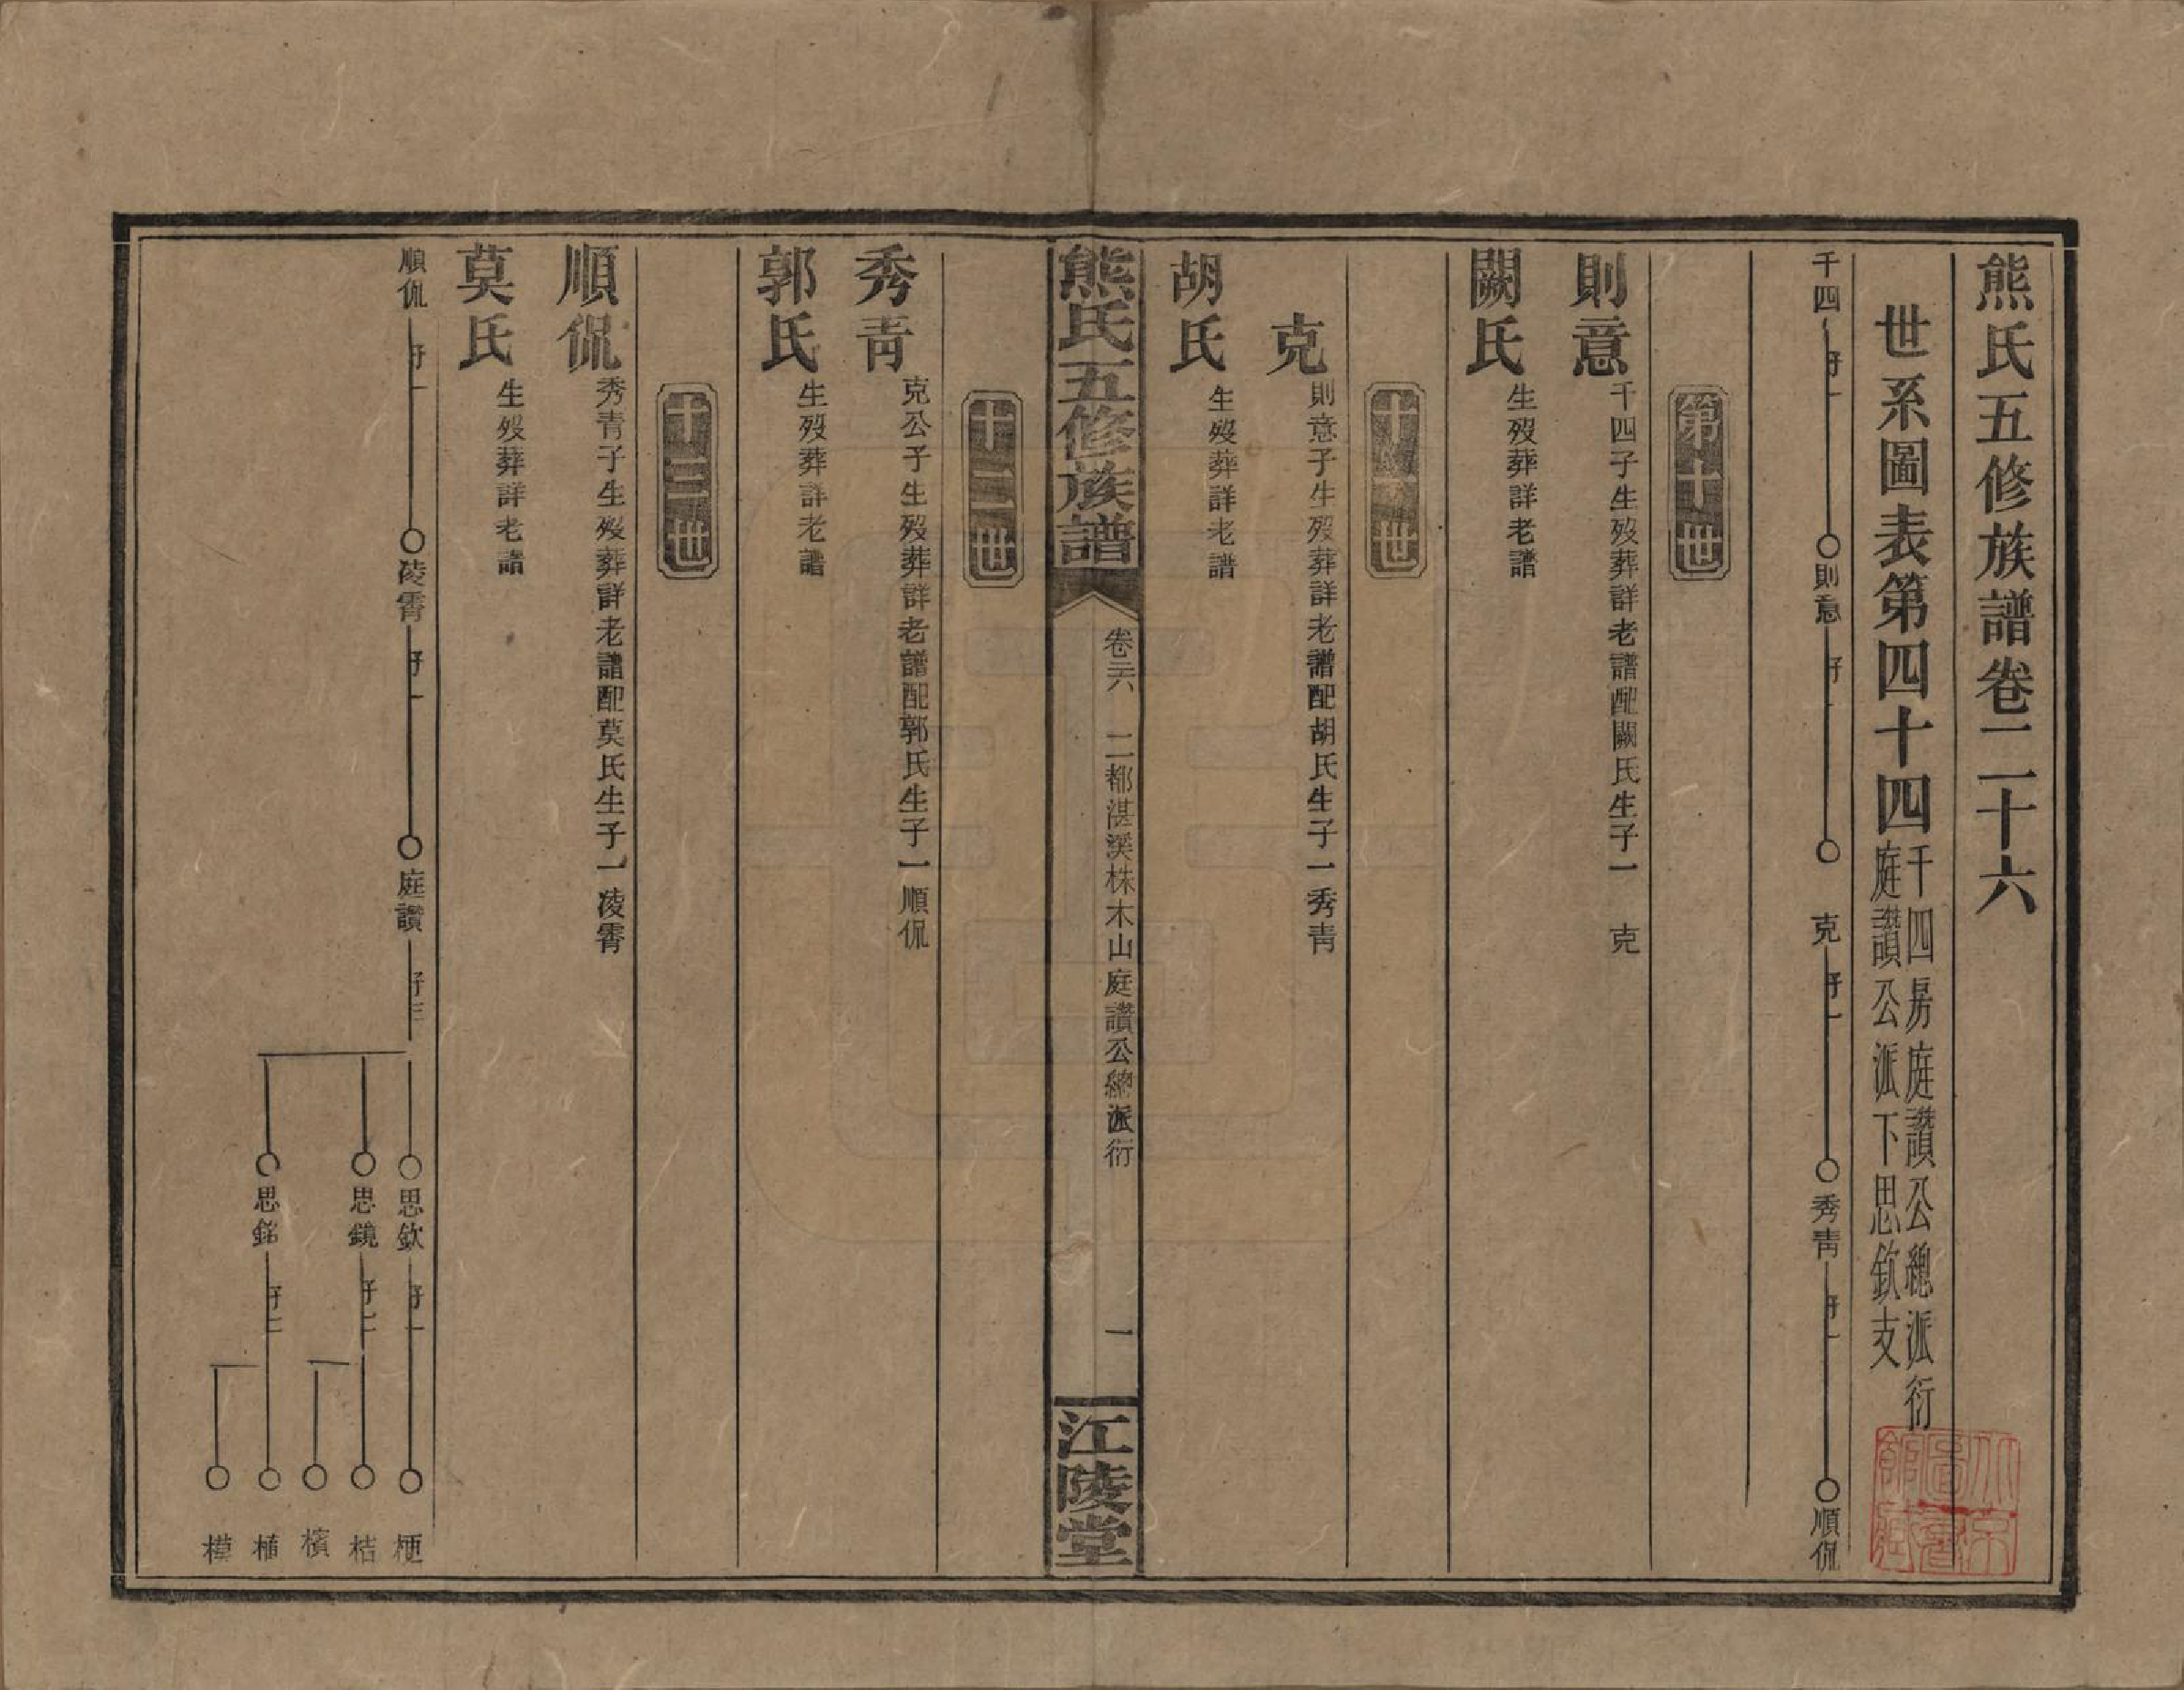 熊氏五修族譜卷二十六
世系圖表第四十四
千四房庭讚公總派衍
庭讚公派下思欽支
千四 子一 則意 子一 克 子一 秀青 子一 順侃
第十世
則意 千四子生歿葬詳老譜配闕氏生子一 克
闕氏 生歿葬詳老譜
十一世
克 則意子生歿葬詳老譜配胡氏生子一秀青
胡氏 生歿葬詳老譜
熊氏五修族譜 卷二六 二都湛溪株木山庭讚公總派衍 一 江陵堂
十二世
秀青 克公子生歿葬詳老譜配郭氏生子一順侃
郭氏 生歿葬詳老譜
十三世
順侃 秀青子生歿葬詳老譜配莫氏生子一凌霄
莫氏 生歿葬詳老譜
順侃 子一 凌霄 子一 庭讚 子三
思欽 子一 梗
思鏡 子二 桔 檳
思銘 子二 植 模
北京圖書館藏